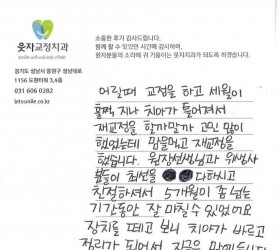 웃자교정치과
경기도 성남시 중원구 성남대로
1156 도원타워 3,4층
031 606 0282
letssmile.co.kr
소중한 후기 감사드립니다.
함께 할 수 있었던 시간에 감사하며,
환자분들의 소리에 귀 기울이는 웃자치과가 되도록 하겠습니다.
어릴때 교정을 하고 세월이
훌쩍 지나 치아가 틀어져서
재교정을 할까말까 고민 많이
했었는데 맘을먹고 재교정을
했습니다. 원장선생님과 위생사
분들이 최선을 다하시고
친절하셔서 5개월이 좀 넘는
기간동안 잘 마칠수 있었어요
장치를 떼고 보니 치아가 바르고
정리가 되어서 지금은 만족합니다